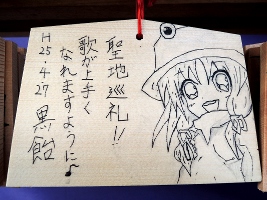 聖地巡礼!!
歌が上手く
なれますように♪
H25.4.27 黒飴